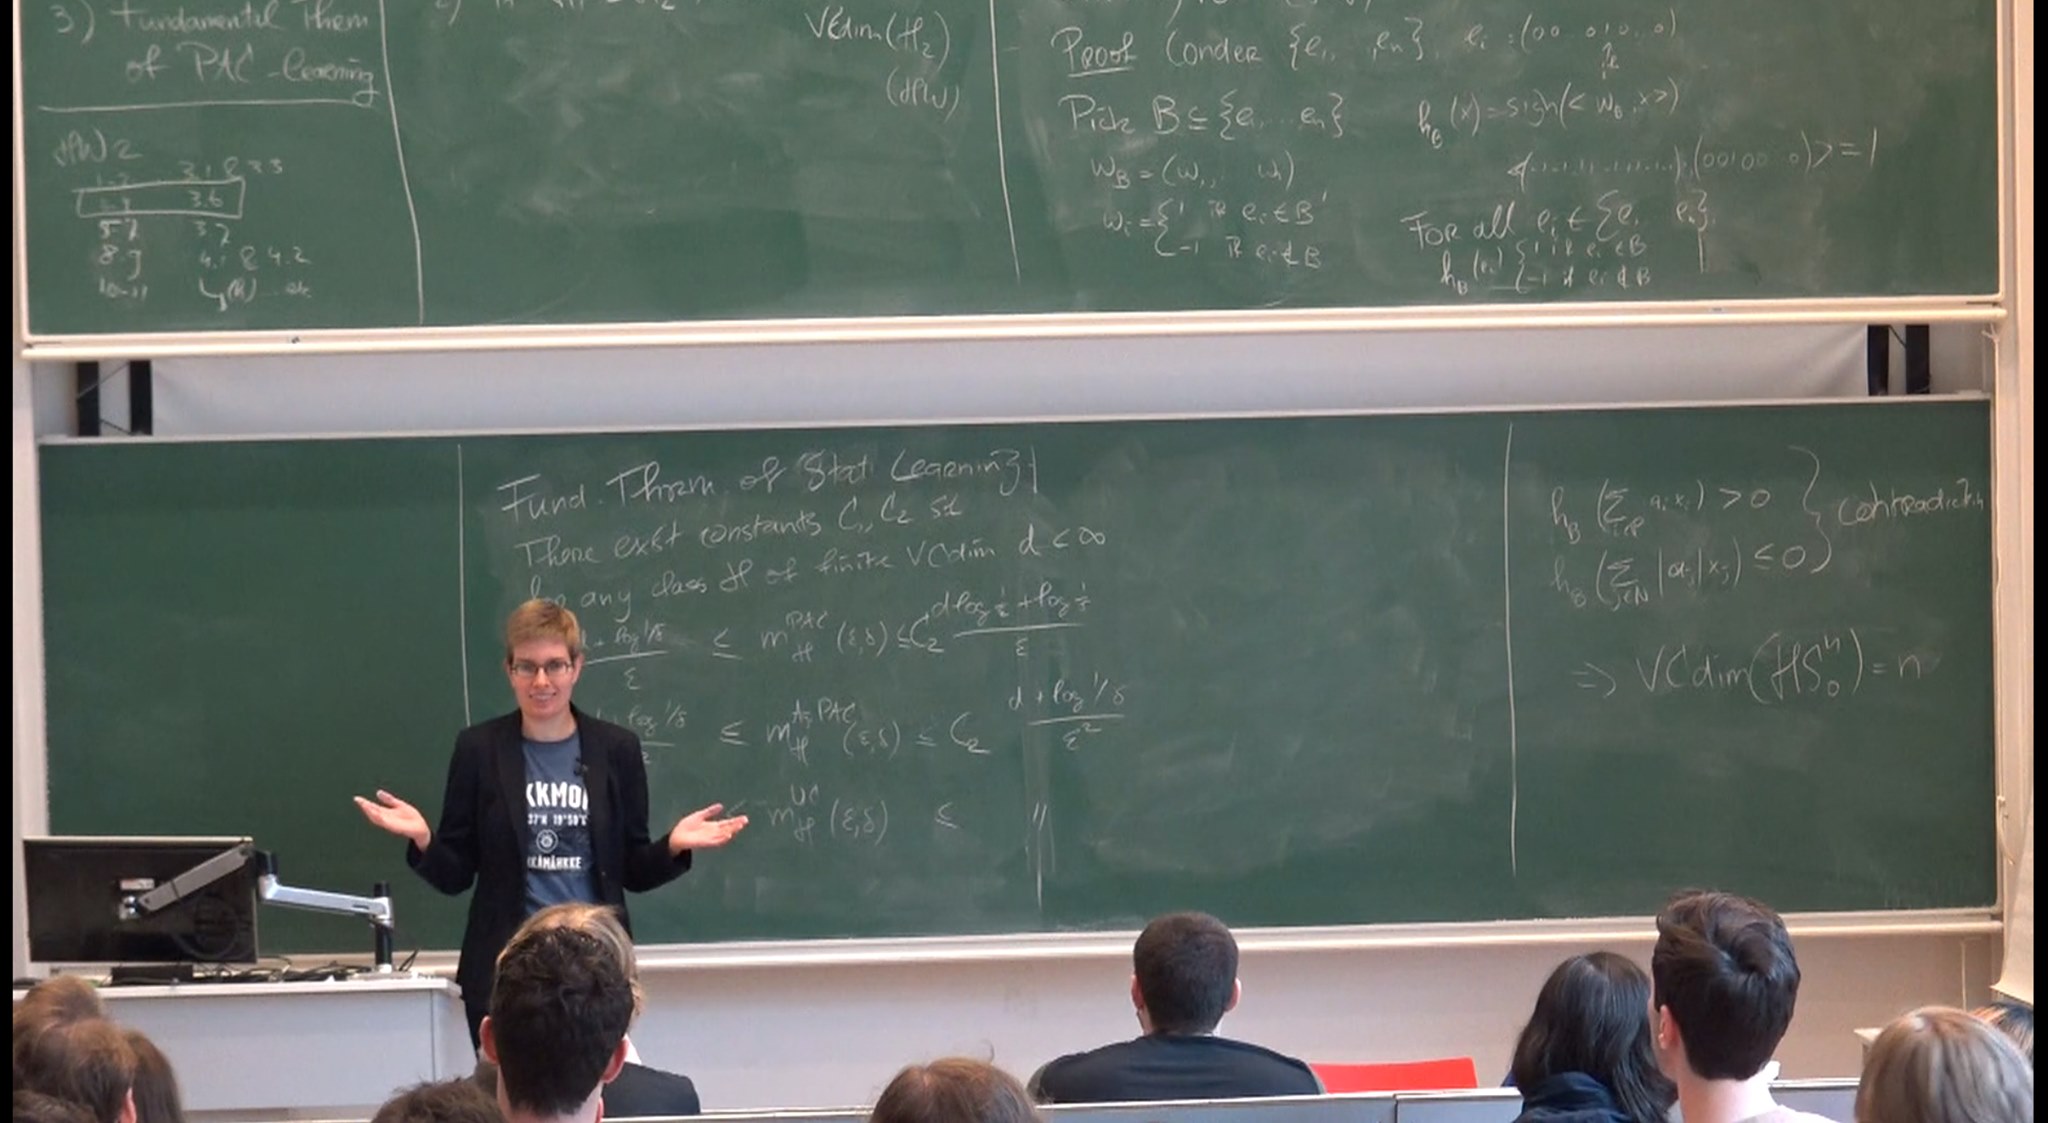 3) Fundamental Thrm
of PAC-learning
HW 2
3.1 & 3.3
3.6
3.7
8-9 4.1 & 4.2
VCdim(H₂)
(HW)
Proof Consder {e₁, ..., eₙ}, eᵢ = (00 010..0)
Pick B ⊆ {e₁...eₙ}
h_B(x) = sign(<w_B, x>)
w_B = (w₁, wₙ)
(00100..0)> = 1
wᵢ = { 1 if eᵢ ∈ B
-1 if eᵢ ∉ B
For all eᵢ ∈ {e₁ eₙ},
h_B(eᵢ) { 1 if eᵢ ∈ B
-1 if eᵢ ∉ B
Fund. Thrm. of Stat. Learning
There exist constants C₁, C₂ st
for any class H of finite VCdim d < ∞
d + log 1/δ / ε ≤ m_H^PAC (ε,δ) ≤ C₂ d log 1/ε + log 1/δ / ε
+ log 1/δ ≤ m_H^Ag PAC (ε,δ) ≤ C₂ d + log 1/δ / ε²
≤ m_H^UC (ε,δ) ≤ "
h_B (∑ aᵢxᵢ) > 0 } contradiction
h_B (∑_{j∈N} |aⱼ|xⱼ) ≤ 0
⇒ VCdim(HS₀ⁿ) = n
KKMO
37'N 19°50'E
KÅMÅHKKE